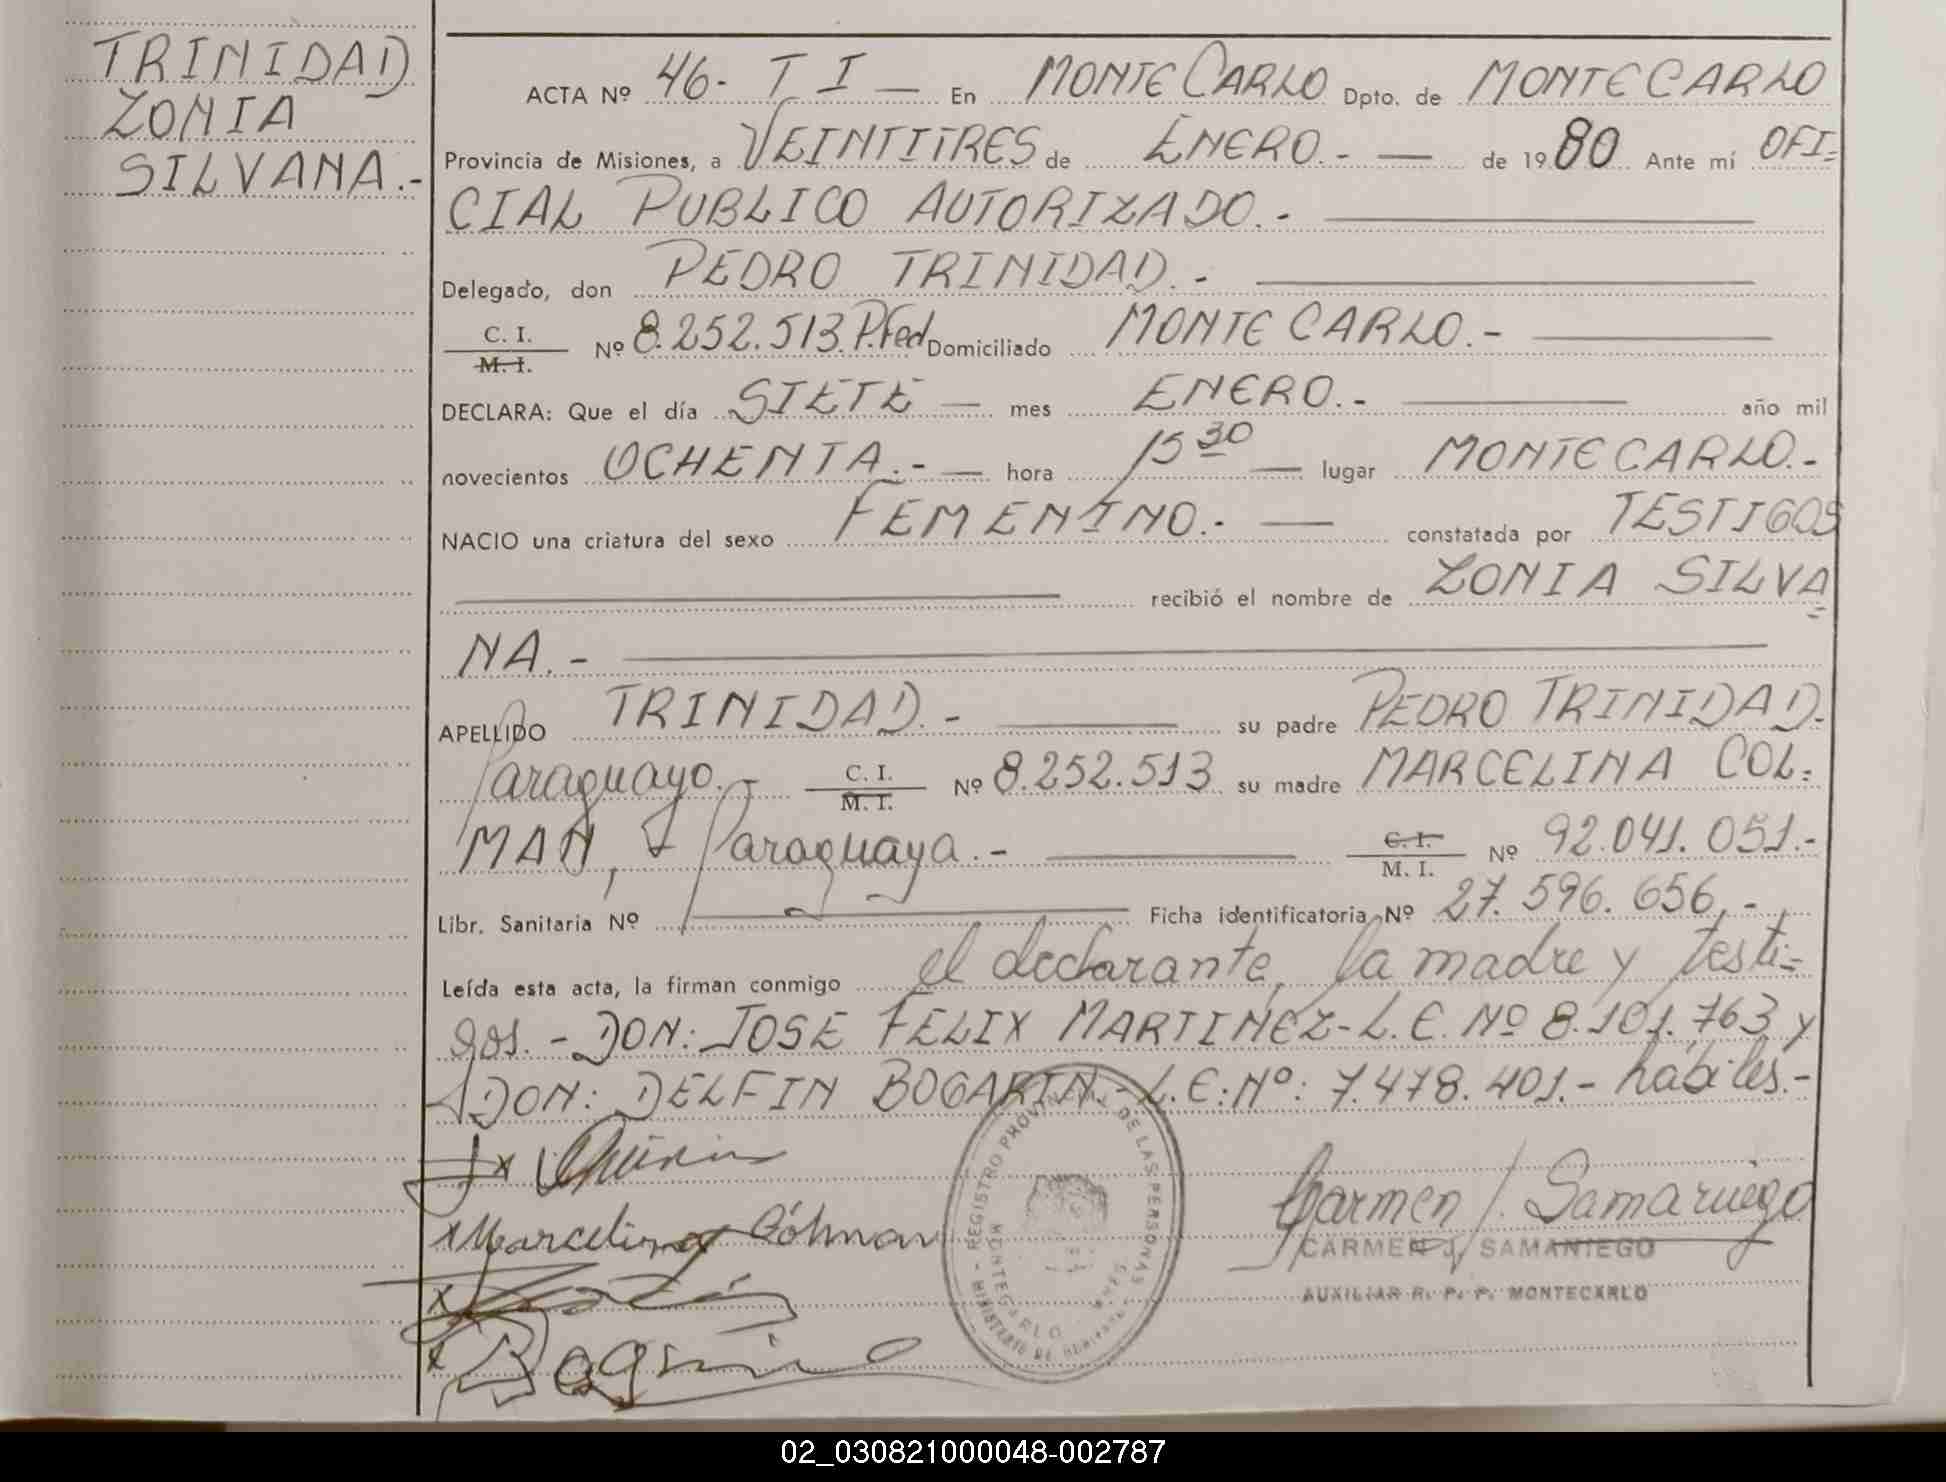 TRINIDAD
ZONIA
SILVANA.-
ACTA Nº 46- T I — En MONTECARLO Dpto. de MONTECARLO
Provincia de Misiones, a VEINTITRES de ENERO.- — de 1980 Ante mí OFI=
CIAL PUBLICO AUTORIZADO.-
Delegado, don PEDRO TRINIDAD.-
C. I.
M. I.
Nº 8.252.513.P.Fed Domiciliado MONTECARLO.-
DECLARA: Que el día SIETE — mes ENERO.- año mil
novecientos OCHENTA.- — hora 15 30 — lugar MONTECARLO.-
NACIO una criatura del sexo FEMENINO.- — constatada por TESTIGOS
recibió el nombre de ZONIA SILVA=
NA.-
APELLIDO TRINIDAD.- su padre PEDRO TRINIDAD.-
Paraguayo.- C. I.
M. I.
Nº 8.252.513 su madre MARCELINA COL=
MAN, Paraguaya.- C. I.
M. I.
Nº 92.041.051.-
Libr. Sanitaria Nº Ficha identificatoria Nº 27.596.656.-
Leída esta acta, la firman conmigo el declarante, la madre y testi=
gos.- DON: JOSE FELIX MARTINEZ- L.E. Nº 8.101.763 y
DON: DELFIN BOGARIN.- L.E:Nº: 7.478.401.- hábiles.-
x Marcelina Cólman
Carmen J. Samaniego
CARMEN J. SAMANIEGO
AUXILIAR R. P. P. MONTECARLO
REGISTRO PROVINCIAL DE LAS PERSONAS
MONTECARLO
MINISTERIO DE
02_030821000048-002787